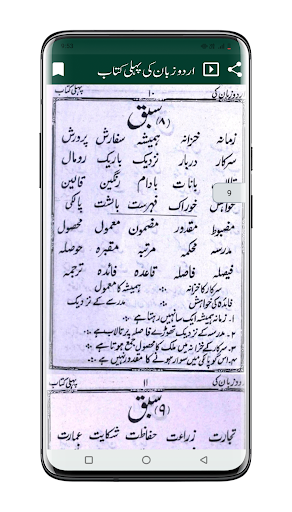 9:03
اردو زبان کی پہلی کتاب
اردو زبان کی ۱۰ پہلی کتاب
سبق (۸)
زمانہ خزانہ ہمیشہ سفارش پرورش
سرکار دربار نزدیک باریک رومال
تالاب بانات بادام رنگین قالین
خواہش خوراک فہرست بالشت پالکی
9
مضبوط مقدور مضمون معمول محصول
مدرسہ محکمہ مرتبہ مقبرہ حوصلہ
فیصلہ فاصلہ قاعدہ فائدہ ترجمہ
سرکار کا خزانہ ہمیشہ کا معمول
فائدہ کی خواہش مدرسے کے نزدیک
۱۔ زمانہ ہمیشہ ایک سا نہیں رہتا ہے ۔
۲۔ مدرسہ کے نزدیک تھوڑے فاصلہ پر تالاب ہے ۔
۳۔ سرکار کے خزانہ میں ملک کا محصول جمع ہوتا ہے
۴۔ اس کو پالکی میں سوار ہونے کا مقدور نہیں ہے ۔
اردو زبان کی ۱۱ پہلی کتاب
سبق (۹)
تجارت زراعت حفاظت شکایت عمارت